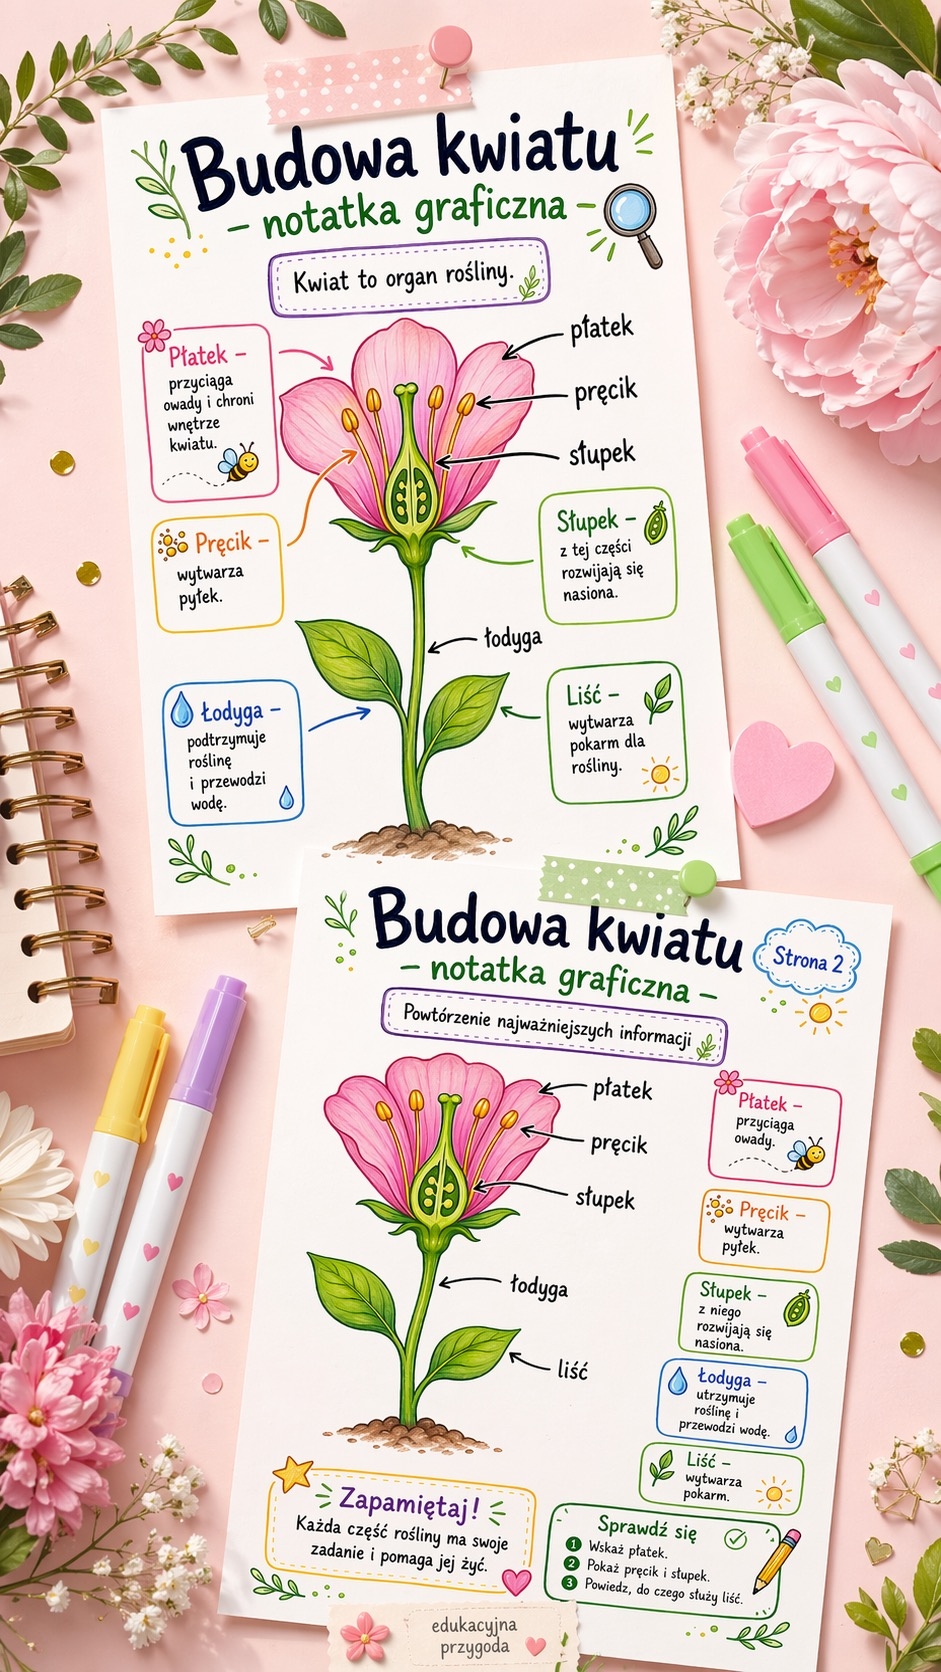 Budowa kwiatu
– notatka graficzna –
Kwiat to organ rośliny.
Płatek –
przyciąga
owady i chroni
wnętrze
kwiatu.
płatek
pręcik
słupek
Pręcik –
wytwarza
pyłek.
Słupek –
z tej części
rozwijają się
nasiona.
łodyga
Łodyga –
podtrzymuje
roślinę
i przewodzi
wodę.
Liść –
wytwarza
pokarm dla
rośliny.
Budowa kwiatu
– notatka graficzna –
Strona 2
Powtórzenie najważniejszych informacji
płatek
pręcik
słupek
łodyga
liść
Płatek –
przyciąga
owady.
Pręcik –
wytwarza
pyłek.
Słupek –
z niego
rozwijają się
nasiona.
Łodyga –
utrzymuje
roślinę i
przewodzi wodę.
Liść –
wytwarza
pokarm.
Zapamiętaj!
Każda część rośliny ma swoje
zadanie i pomaga jej żyć.
Sprawdź się
1 Wskaż płatek.
2 Pokaż pręcik i słupek.
3 Powiedz, do czego służy liść.
edukacyjna
przygoda